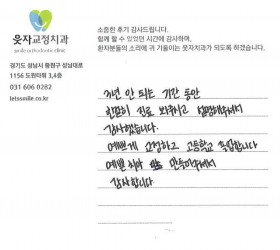 웃자교정치과
smile orthodontic clinic
경기도 성남시 중원구 성남대로
1156 도원타워 3,4층
031 606 0282
letssmile.co.kr
소중한 후기 감사드립니다.
함께 할 수 있었던 시간에 감사하며,
환자분들의 소리에 귀 기울이는 웃자치과가 되도록 하겠습니다.
3년 안 되는 기간 동안
친절히 진료 봐주시고 설명해주셔서
감사했습니다.
예쁘게 교정하고 고등학교 졸업합니다
예쁜 치아 만들어주셔서
감사합니다.